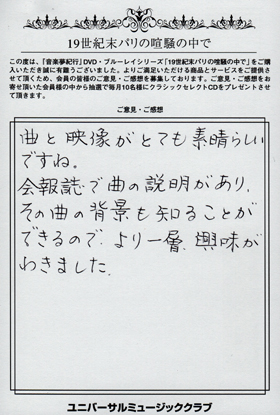 19世紀末パリの喧騒の中で
この度は、「音楽夢紀行」DVD・ブルーレイシリーズ「19世紀末パリの喧騒の中で」をご購
入いただき誠に有難うございました。よりご満足いただける商品とサービスをご提供さ
せて頂くため、会員の皆様のご意見・ご感想を募集しております。ご意見・ご感想をお
寄せ頂いた会員様の中から抽選で毎月10名様にクラシックセレクトCDをプレゼントさせ
て頂きます。
ご意見・ご感想
曲と映像がとても素晴らしい
ですね。
会報誌で曲の説明があり、
その曲の背景も知ることが
できるので、より一層、興味が
わきました。
ユニバーサルミュージッククラブ